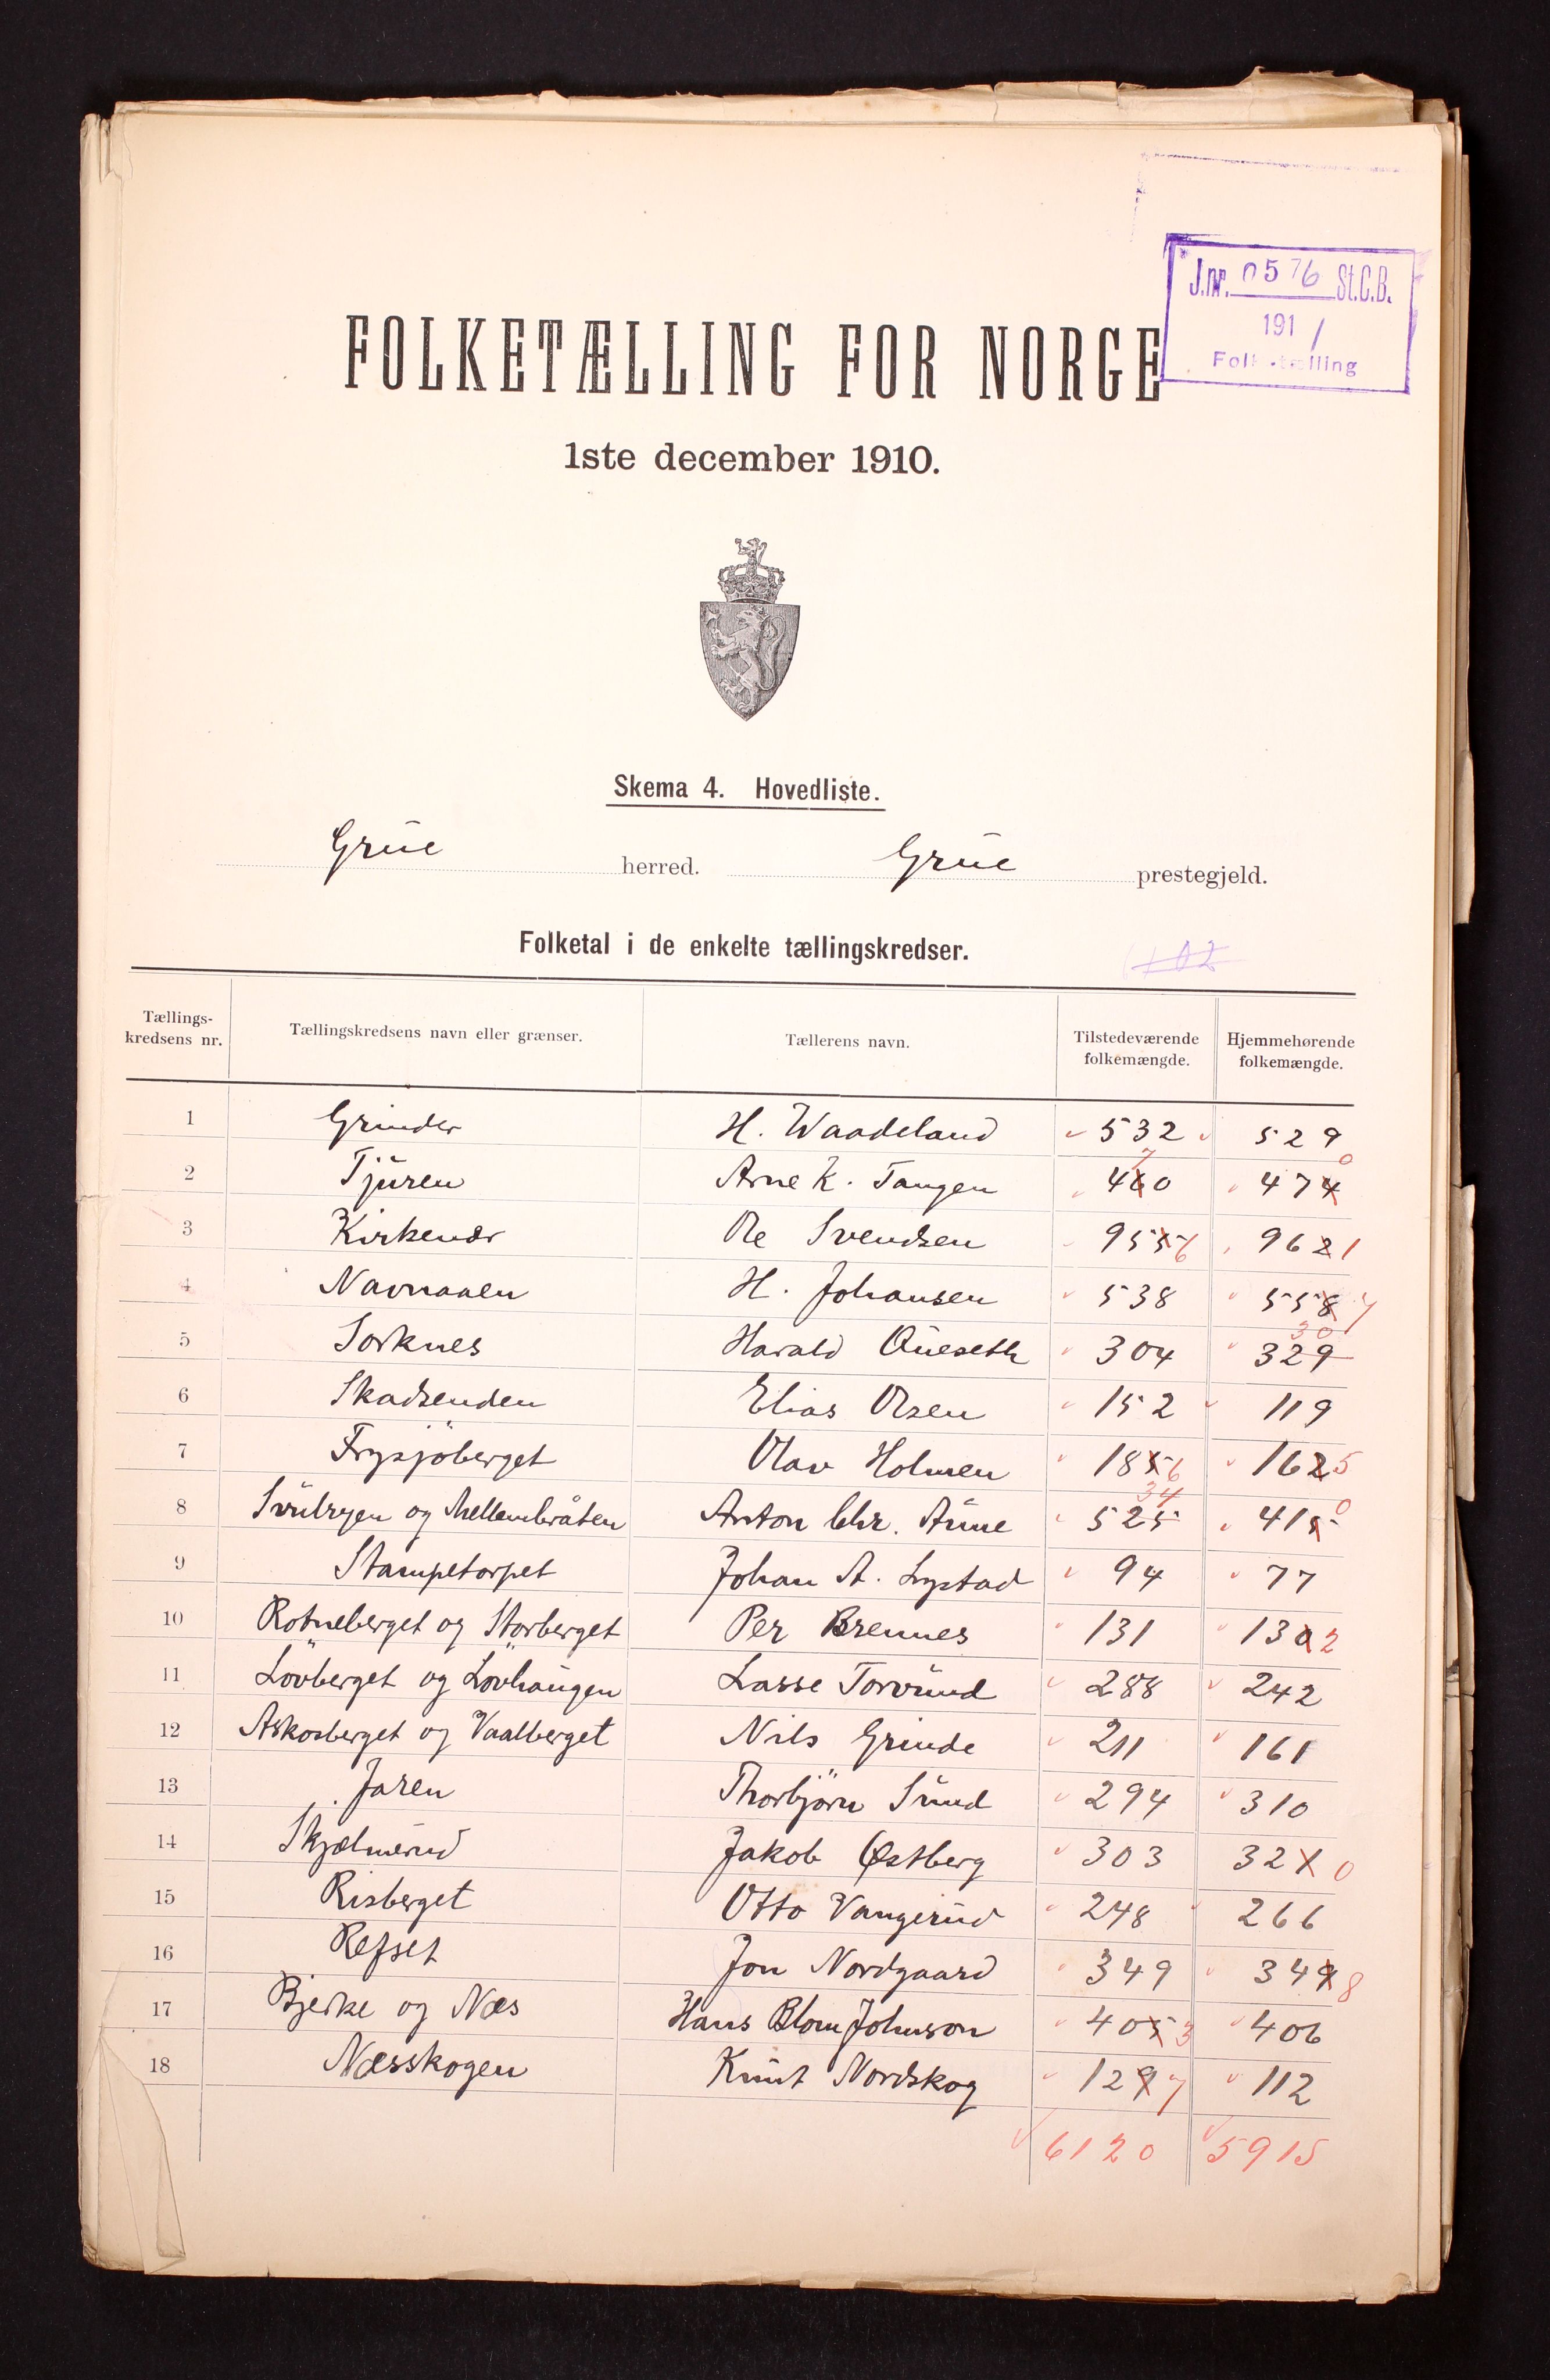 J.nr. 0576 St.C.B.
1911
Folketælling
FOLKETÆLLING FOR NORGE
1ste december 1910.
Skema 4. Hovedliste.
Grue herred. Grue prestegjeld.
Folketal i de enkelte tællingskredser.
Tællings-kredsens nr. Tællingskredsens navn eller grænser. Tællerens navn. Tilstedeværende folkemængde. Hjemmehørende folkemængde.
1 Grinder H. Waadeland 532 529
2 Tjuren Arne K. Tangen 460 7 474 0
3 Kirkenær Ole Svendsen 955 6 962 1
4 Navnaaen H. Johansen 538 558 7
5 Sorknes Harald Queseth 304 329 30
6 Skadsenden Elias Olsen 152 119
7 Frysjöberget Olav Holmen 185 6 162 5
8 Svulryen og Mellembråten Anton Chr. Aune 525 34 415 0
9 Stampetorpet Johan A. Lystad 94 77
10 Rotneberget og Storberget Per Brennes 131 130 2
11 Lövberget og Lövhaugen Lasse Torvund 288 242
12 Askosberget og Vaalberget Nils Grinde 211 161
13 Jaren Thorbjörn Sund 294 310
14 Skjælmerud Jakob Østberg 303 321 0
15 Risberget Otto Vangerud 248 266
16 Refset Jon Nordgaard 349 349 8
17 Bjerke og Næs Hans Blom Johnson 405 3 406
18 Næsskogen Knut Nordskog 129 7 112
6120 5915